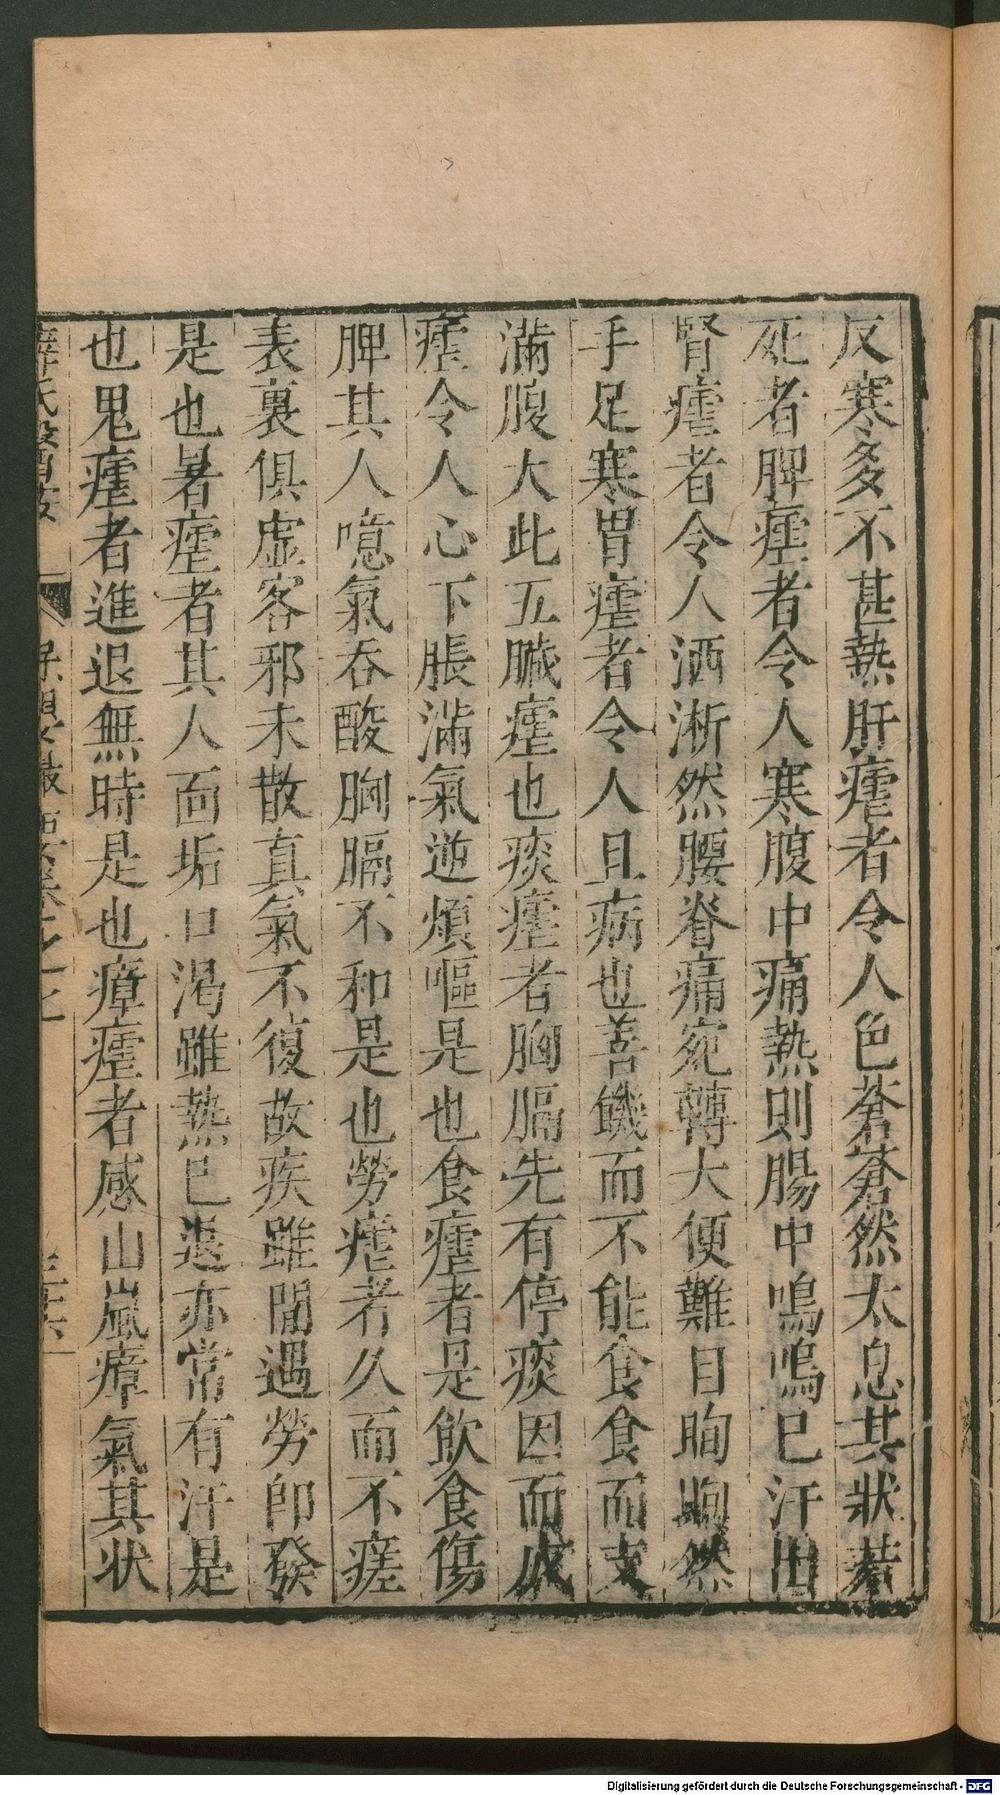 反寒多不甚熱肝瘧者令人色蒼蒼然太息其狀若
死者脾瘧者令人寒腹中痛熱則腸中鳴鳴已汗出
腎瘧者令人洒淅然腰脊痛宛轉大便難目眴眴然
手足寒胃瘧者令人且病也善饑而不能食食而支
滿腹大此五臟瘧也痰瘧者胸膈先有停痰因而成
瘧令人心下脹滿氣逆煩嘔是也食瘧者是飲食傷
脾其人噫氣吞酸胸膈不和是也勞瘧者久而不瘥
表裏俱虛客邪未散真氣不復故疾雖間遇勞即發
是也暑瘧者其人面垢口渴雖熱已退亦常有汗是
也鬼瘧者進退無時是也瘴瘧者感山嵐瘴氣其状
薛氏醫按
保嬰撮要卷之七
三十六
Digitalisierung gefördert durch die Deutsche Forschungsgemeinschaft - DFG